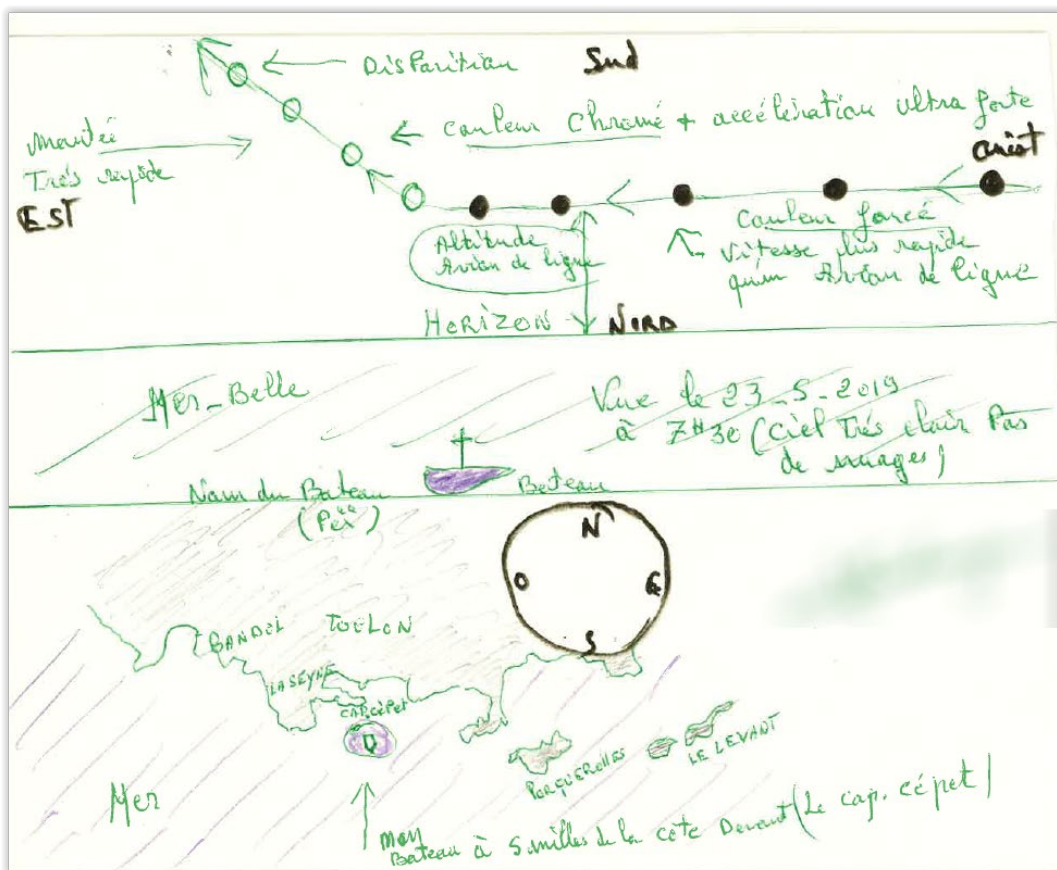 Disparition
Sud
couleur Chromé + accélération ultra forte
Montée
Trés rapide
EST
ouest
Altitude
Avion de ligne
couleur foncé
Vitesse plus rapide
qu'un Avion de ligne
HORIZON
NORD
Mer-Belle
Vue le 23-5-2019
à 7H30 (ciel Trés clair Pas
de nuages)
Nom du Bateau
Bateau
N
O
E
S
BANDOL
TOULON
LA SEYNE
CAP CÉPET
PORQUEROLLES
LE LEVANT
Mer
mon
Bateau à 5 milles de la cote Devant (Le cap. cépet)